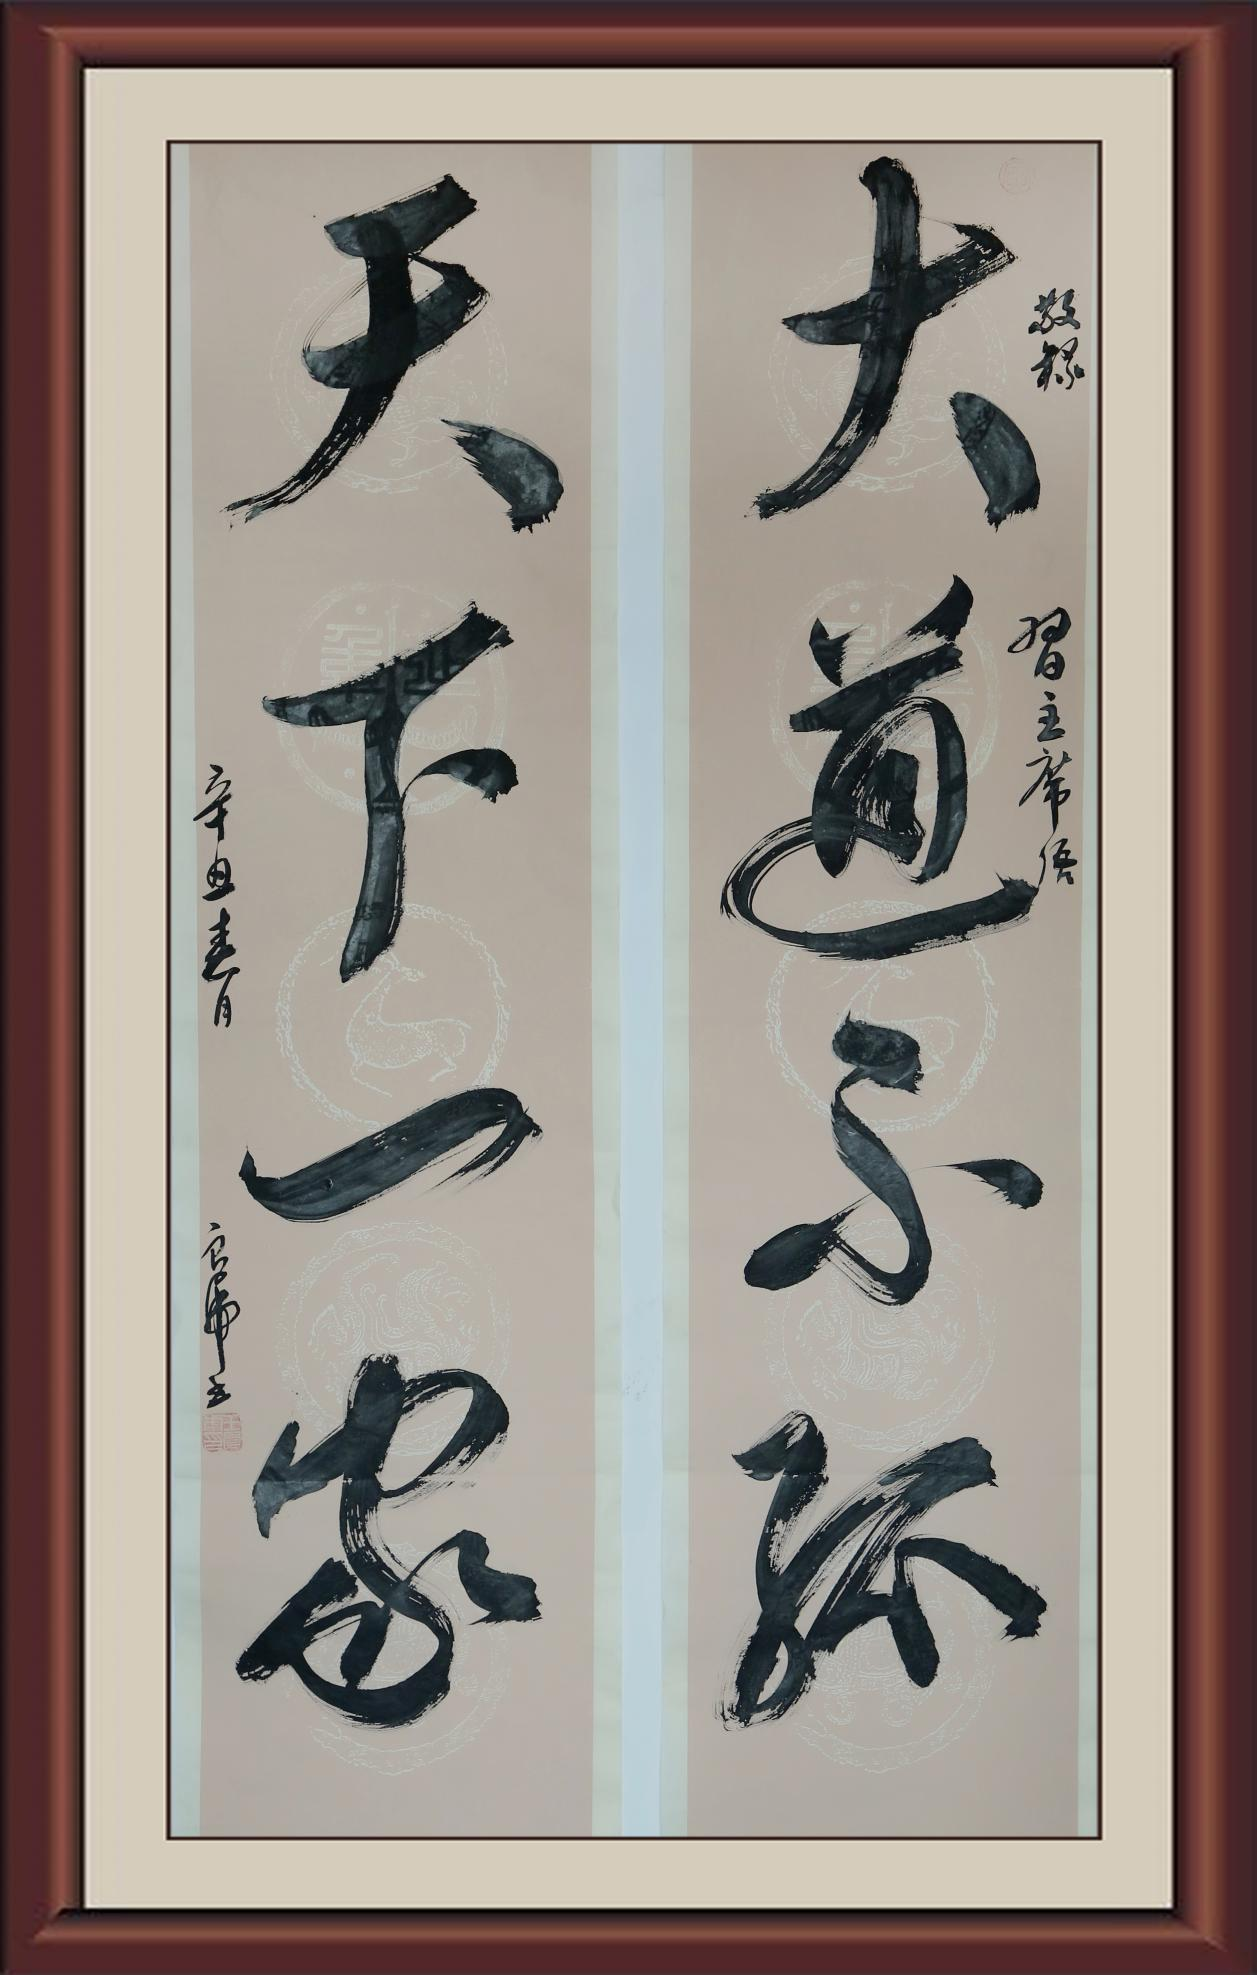 敬録
習主席语
大道不孤
天下一家
辛丑春月
良席书